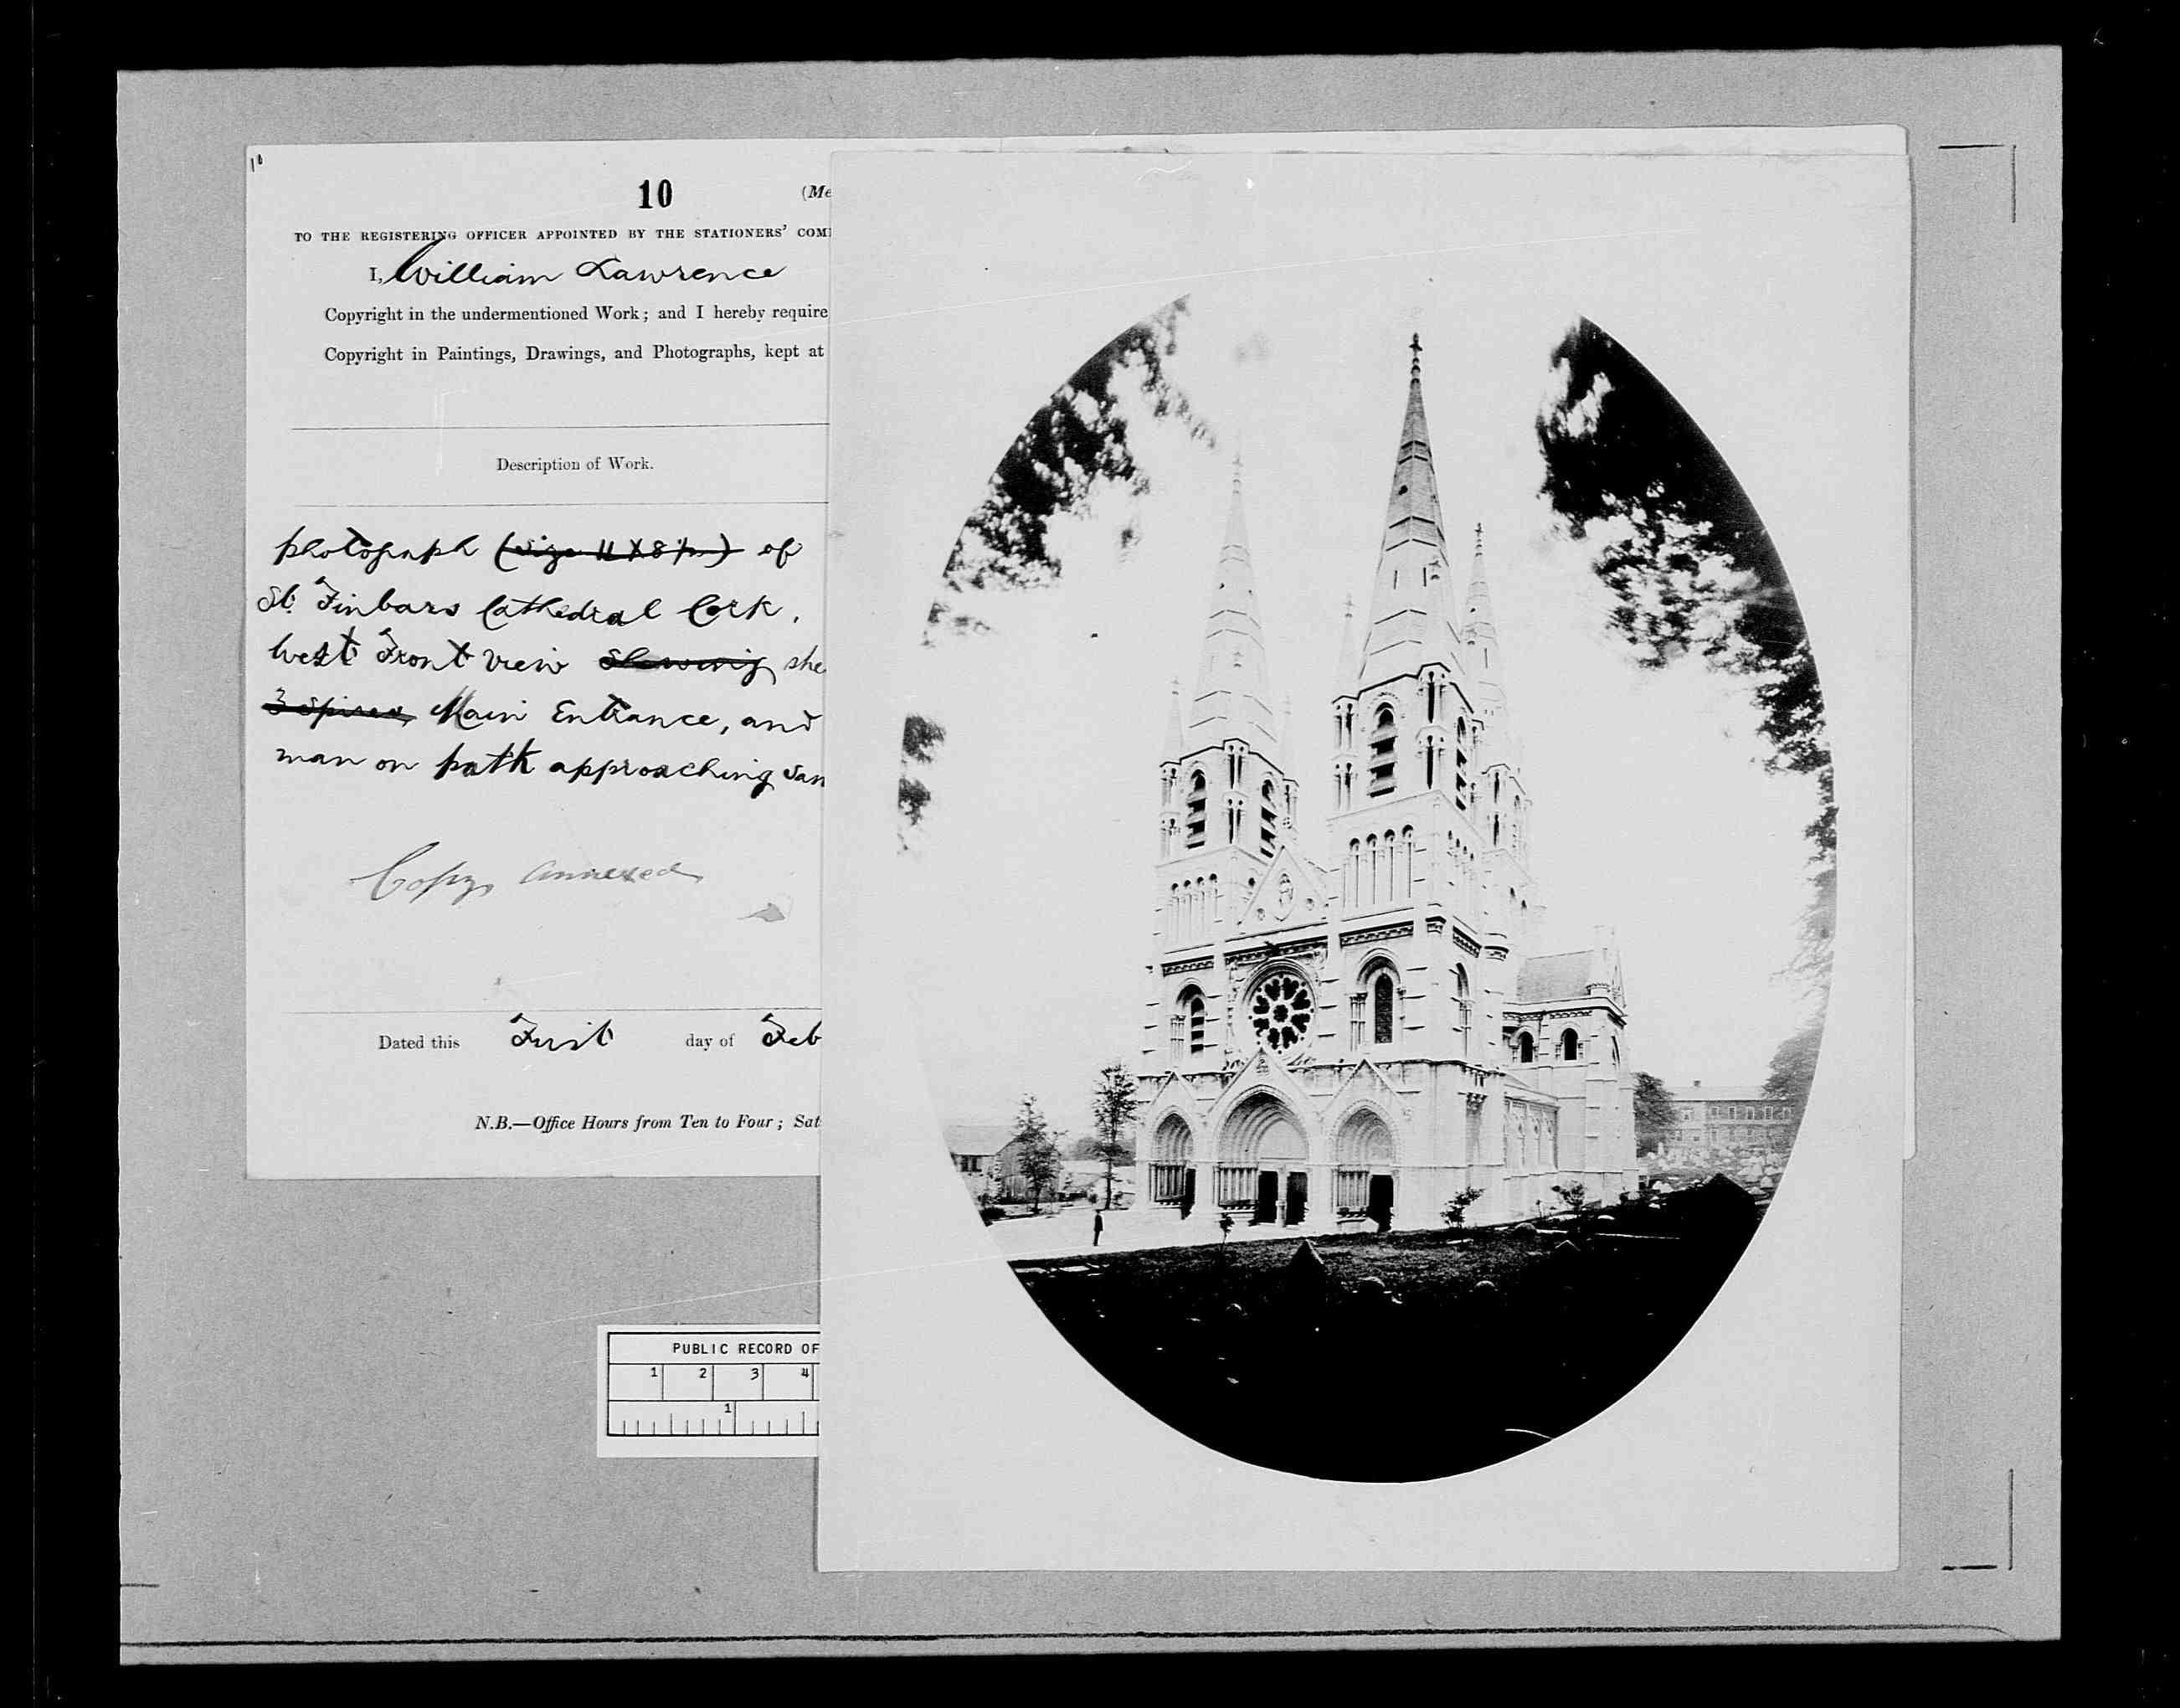 10
10
(Me
TO THE REGISTERING OFFICER APPOINTED BY THE STATIONERS' COM
I, William Lawrence
Copyright in the undermentioned Work; and I hereby require
Copyright in Paintings, Drawings, and Photographs, kept at
Description of Work.
photograph (size 11 X 8 1/2) of
St. Finbars Cathedral Cork.
West Front view Shewing she
3 Spires, Main Entrance, and
man on path approaching sam
Copy annexed
Dated this First day of Feb
N.B.—Office Hours from Ten to Four; Sat
PUBLIC RECORD OF
1 2 3 4
1